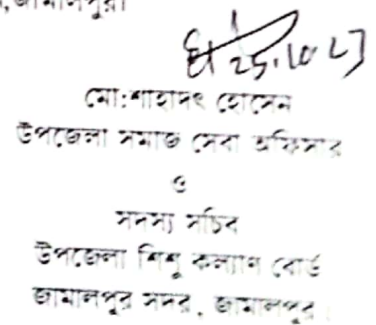 ,জামালপুর।
25.10.23
মো:শাহাদৎ হোসেন
উপজেলা সমাজ সেবা অফিসার
ও
সদস্য সচিব
উপজেলা শিশু কল্যাণ বোর্ড
জামালপুর সদর, জামালপুর।